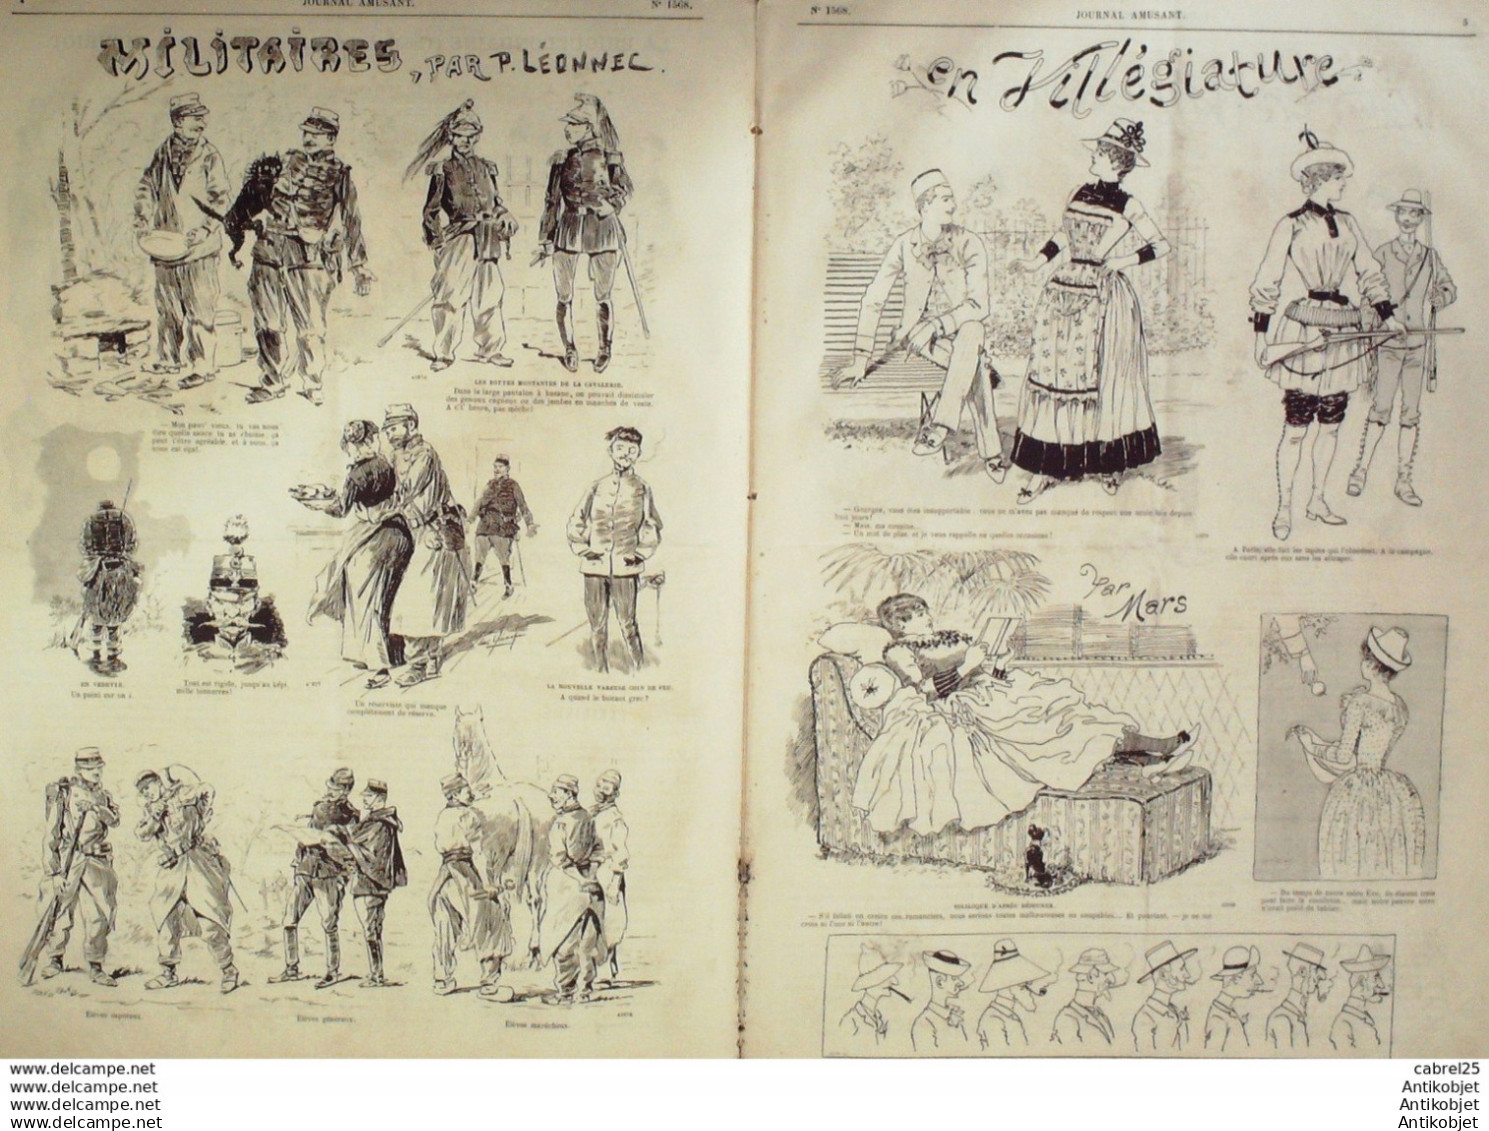 4
JOURNAL AMUSANT.
N° 1568.
MILITAIRES, PAR P. LÉONNEC.
LES BOTTES MONTANTES DE LA CAVALERIE.
Dans le large pantalon à basane, on pouvait dissimuler
des genoux cagneux ou des jambes en manches de veste.
A c't' heure, pas mèche!
— Mon pauv' vieux, tu vas nous
dire quelle sauce tu as choisie, ça
peut t'être agréable, et à nous, ça
nous est égal.
EN VEDETTE.
Un point sur un i.
Tout est rigide, jusqu'au képi
mille tonnerres!
Un réserviste qui manque
complètement de réserve.
LA NOUVELLE VAREUSE COUP DE FEU.
A quand le bonnet grec?
Élèves caporaux.
Élèves généraux.
Élèves maréchaux.
N° 1568.
JOURNAL AMUSANT.
5
en Villégiature
— Georges, vous êtes insupportable: vous ne m'avez pas manqué de respect une seule fois depuis
huit jours!
— Mais, ma cousine...
— Un mot de plus, et je vous rappelle en quelles occasions!
A Paris, elle fait les lapins qui l'attendent. A la campagne,
elle court après eux sans les attraper.
Par Mars
SOLILOQUE D'APRÈS DÉJEUNER.
— S'il fallait en croire ces romanciers, nous serions toutes malheureuses ou coupables... Et pourtant, — je ne me
crois ni l'une ni l'autre!
— Du temps de notre mère Ève, ils étaient trois
pour faire la cueillette... mais notre pauvre mère
n'avait point de tablier.
www.delcampe.net
www.delcampe.net
www.delcampe.net
www.delcampe.net
cabrel25
Antikobjet
Antikobjet
Antikobjet